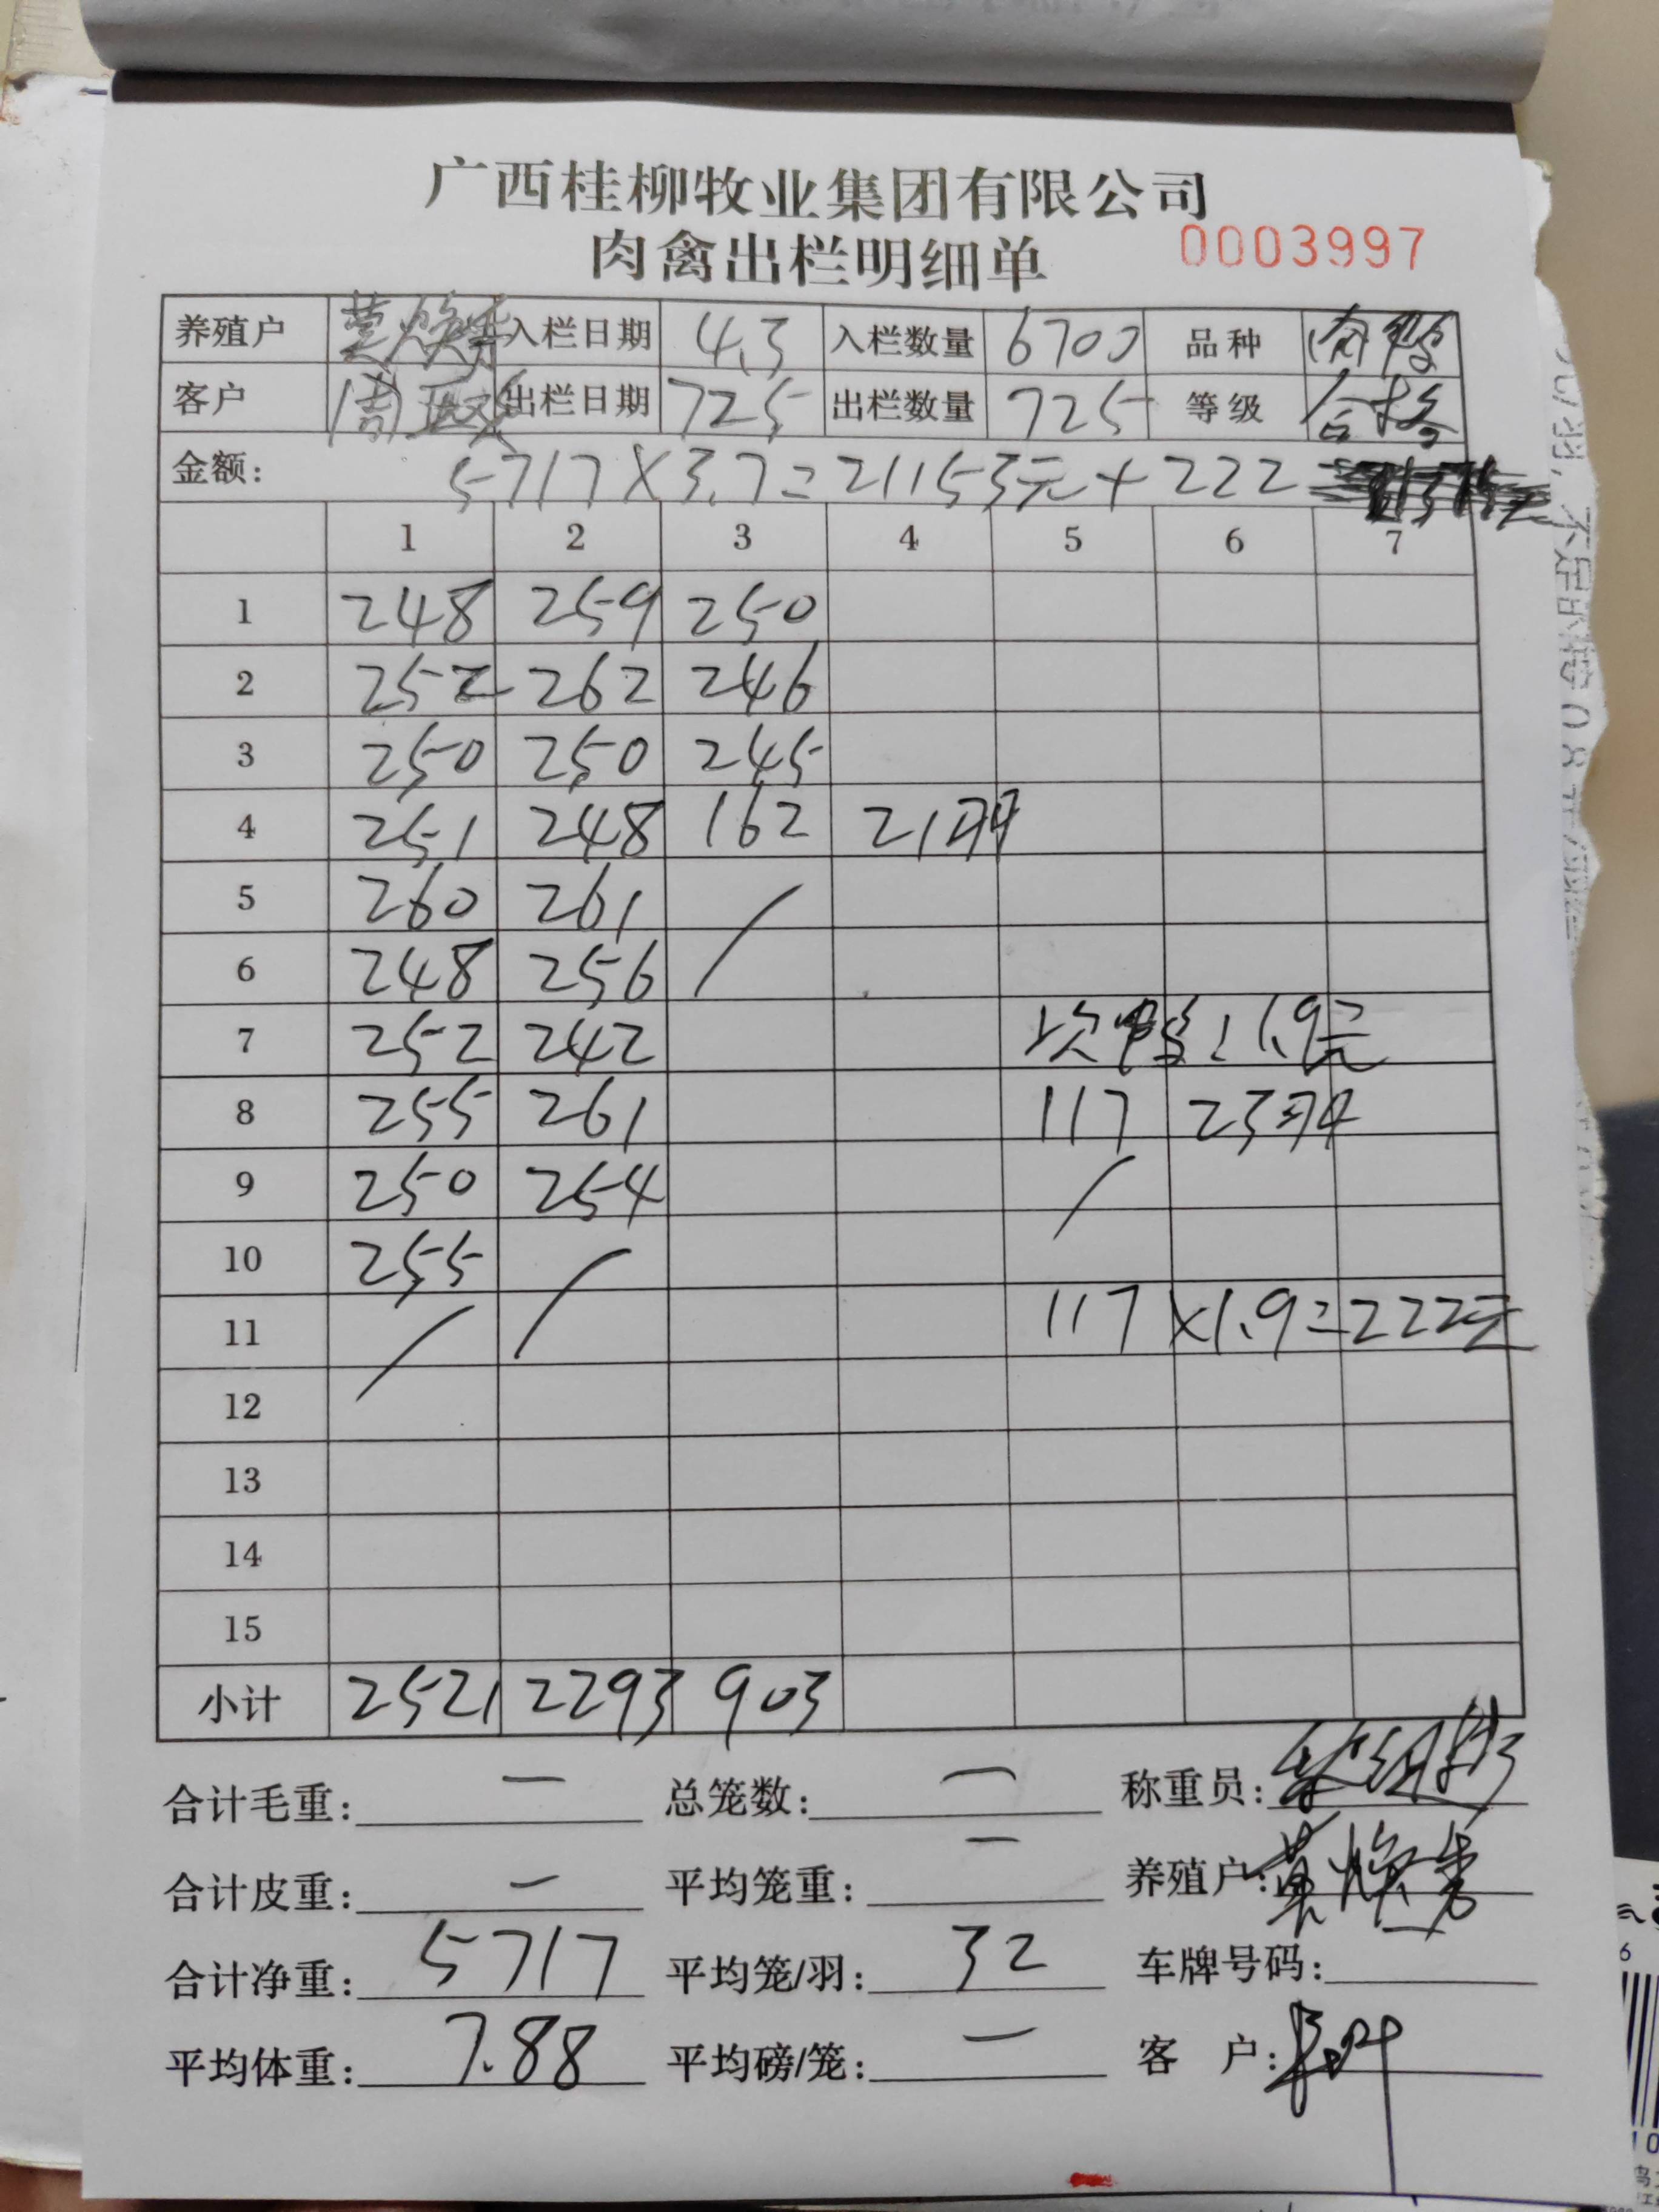 广西桂柳牧业集团有限公司
肉禽出栏明细单 0003997
养殖户 黄焕秀 入栏日期 4.3 入栏数量 6700 品种 肉鸭
客户 周 出栏日期 725 出栏数量 725 等级 合格
金额: 5717×3.7=21153元+222
1 2 3 4 5 6 7
1 248 259 250
2 252 262 246
3 250 250 245
4 251 248 162 21羽
5 260 261 /
6 248 256
7 252 242 次鸭:1.9元
8 255 261 117 23羽
9 250 254 /
10 255 /
11 / 117×1.9=222元
12
13
14
15
小计 2521 2293 903
合计毛重: — 总笼数: — 称重员:
合计皮重: — 平均笼重: — 养殖户: 黄焕秀
合计净重: 5717 平均笼/羽: 32 车牌号码:
平均体重: 7.88 平均磅/笼: — 客 户: